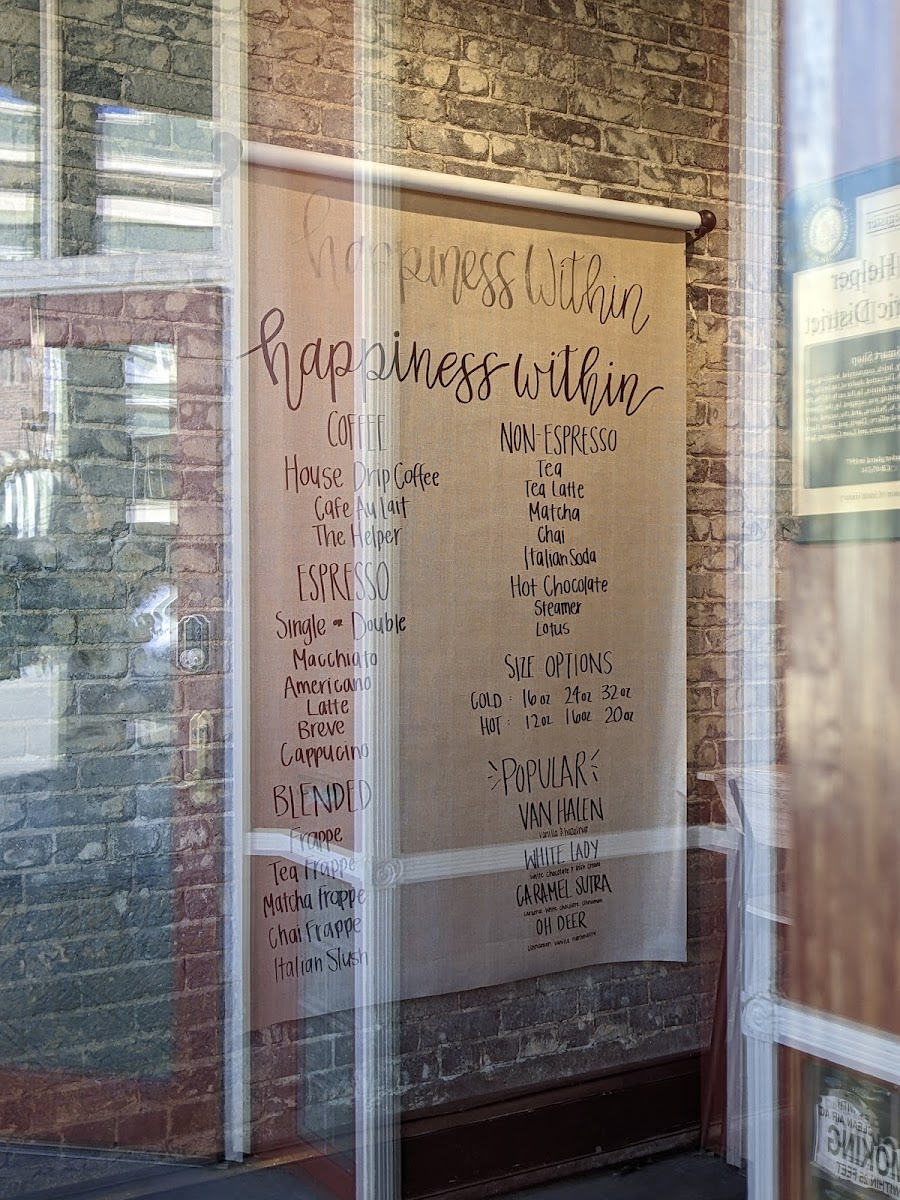 happiness Within
happiness within
COFFEE
House Drip Coffee
Cafe Au Lait
The Helper
ESPRESSO
Single or Double
Macchiato
Americano
Latte
Breve
Cappucino
BLENDED
Frappe
Tea Frappe
Matcha Frappe
Chai Frappe
Italian Slush
NON-ESPRESSO
Tea
Tea Latte
Matcha
Chai
Italian Soda
Hot Chocolate
Steamer
Lotus
SIZE OPTIONS
COLD: 16oz 24oz 32oz
HOT: 12oz 16oz 20oz
POPULAR
VAN HALEN
vanilla & hazelnut
WHITE LADY
white chocolate & Irish cream
CARAMEL SUTRA
caramel white chocolate cinnamon
OH DEER
cinnamon vanilla
Helper
District
Smart Shop
CLEAN AIR
WITHIN 25 FEET